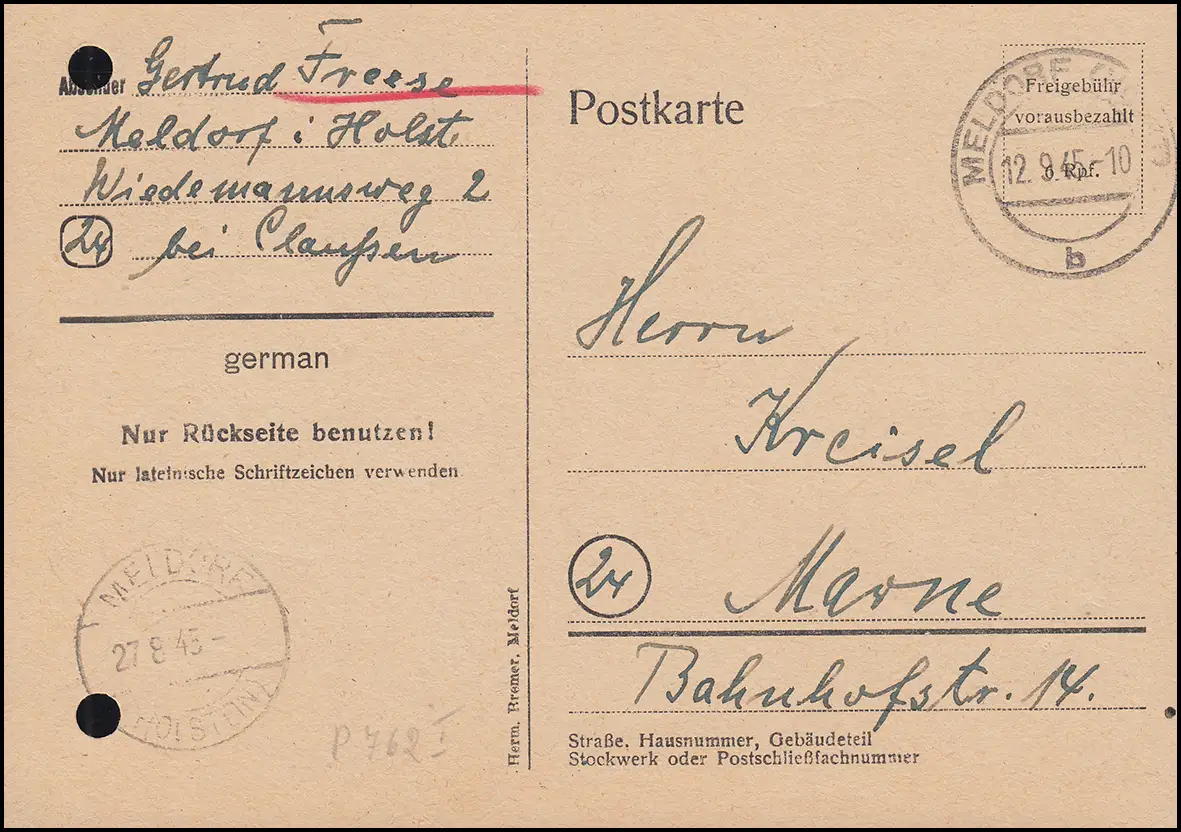 Absender Gertrud Freese
Meldorf i Holst.
Wiedemannsweg 2
24 bei Claußen
german
Nur Rückseite benutzen!
Nur lateinische Schriftzeichen verwenden
MELDORF
27 8 45 -
(HOLSTEIN)
P 762 I
Herm. Bremer, Meldorf
Postkarte
Freigebühr
vorausbezahlt
6 Rpf.
MELDORF
12.9.45-10
b
Herrn
Kreisel
24 Marne
Bahnhofstr. 14.
Straße, Hausnummer, Gebäudeteil
Stockwerk oder Postschließfachnummer